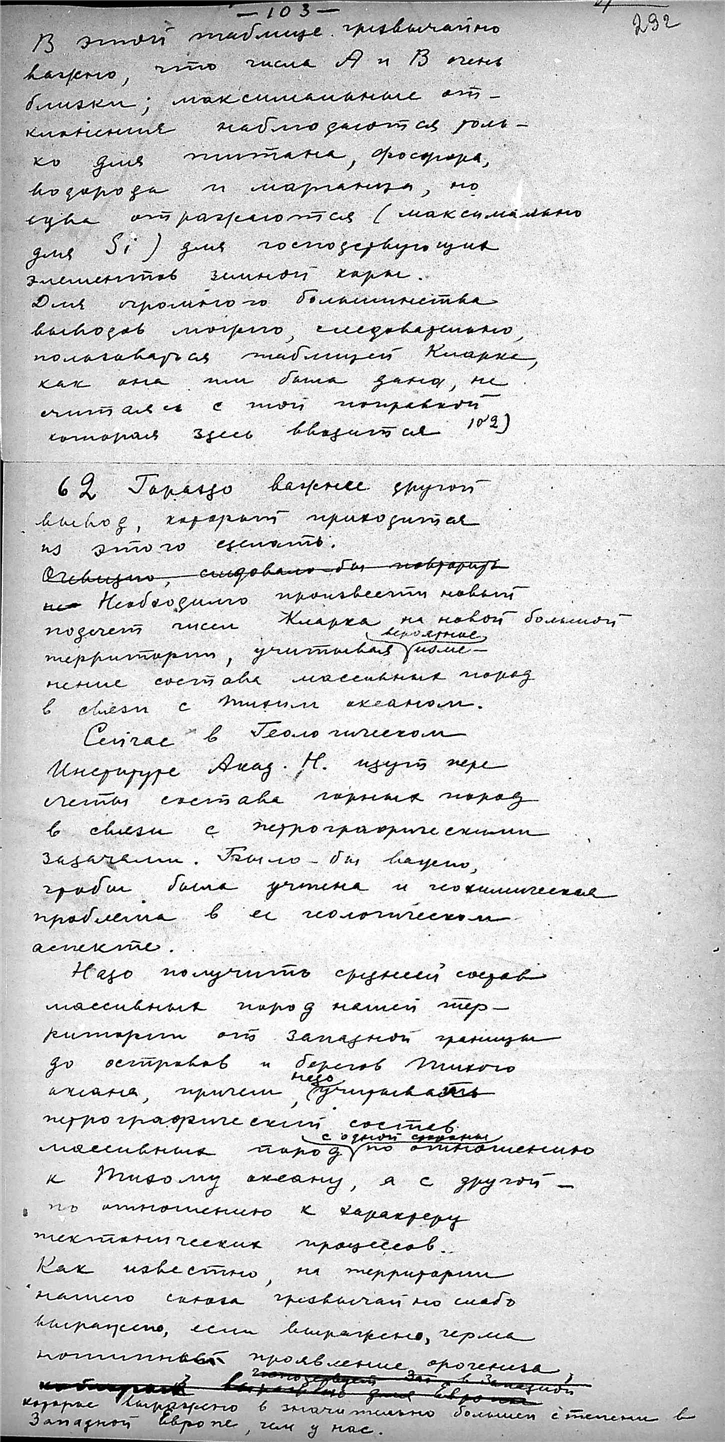 — 103 —
292
В этой таблице чрезвычайно
важно, что числа А и В очень
близки; максимальные от-
клонения наблюдаются толь-
ко для титана, фосфора,
водорода и марганца, но
едва отражаются (максимально
для Si) для господствующих
элементов земной коры.
Для огромного большинства
выводов можно, следовательно,
пользоваться таблицей Кларка,
как она им была дана, не
считаясь с той поправкой
которая здесь вводится 102)
62 Гораздо важнее другой
вывод, который приходится
из этого сделать.
Очевидно, следовало-бы повторить
не Необходимо произвести новый
подсчет чисел Кларка на новой большой
вероятное
территории, учитывая изме-
нение состава массивных пород
в связи с Тихим океаном.
Сейчас в Геологическом
Институте Акад. Н. идут пере
счеты состава горных пород
в связи с петрографическими
задачами. Было-бы важно,
чтобы была учтена и геохимическая
проблема в ее геологическом
аспекте.
Надо получить средний состав
массивных пород нашей тер-
ритории от западной границы
до островов и берегов Тихого
надо
океана, причем, учитывать
петрографический состав
с одной стороны
массивных пород по отношению
к Тихому океану, а с другой —
по отношению к характеру
тектонических процессов.
Как известно, на территории
нашего союза чрезвычайно слабо
выражено, если выражено, герма
нотипное проявление орогениза,
господствует это в Западной
выражено для Европы
которые выражено в значительно большей степени в
Западной Европе, чем у нас.